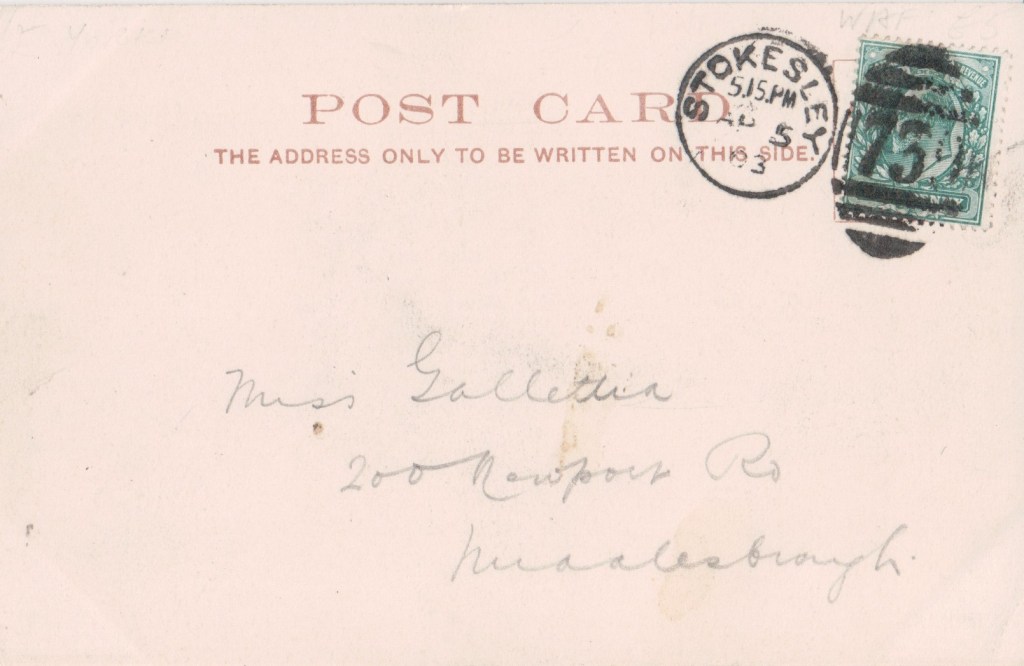 POST CARD
THE ADDRESS ONLY TO BE WRITTEN ON THIS SIDE.
STOKESLEY
5.15.PM
AP 5
03
Miss Gallettia
200 Newport Rd
Middlesbrough.